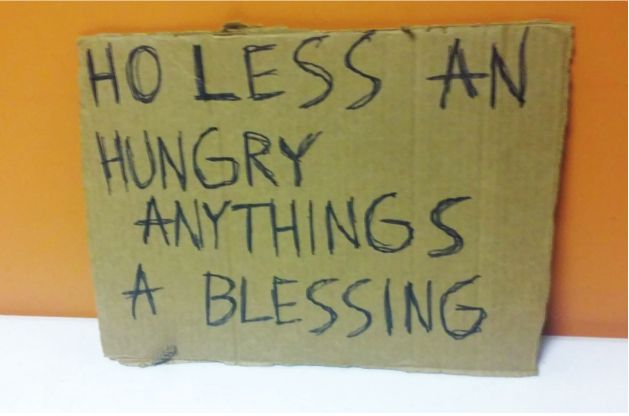 HO LESS AN
HUNGRY
ANYTHINGS
A BLESSING